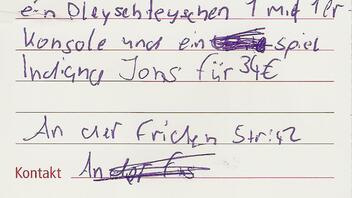 ein Pleyschteyschen 1 mid 1er
Konsole und ein spiel
Indiana Jons für 34€
An der Frichen Str.
Kontakt An der